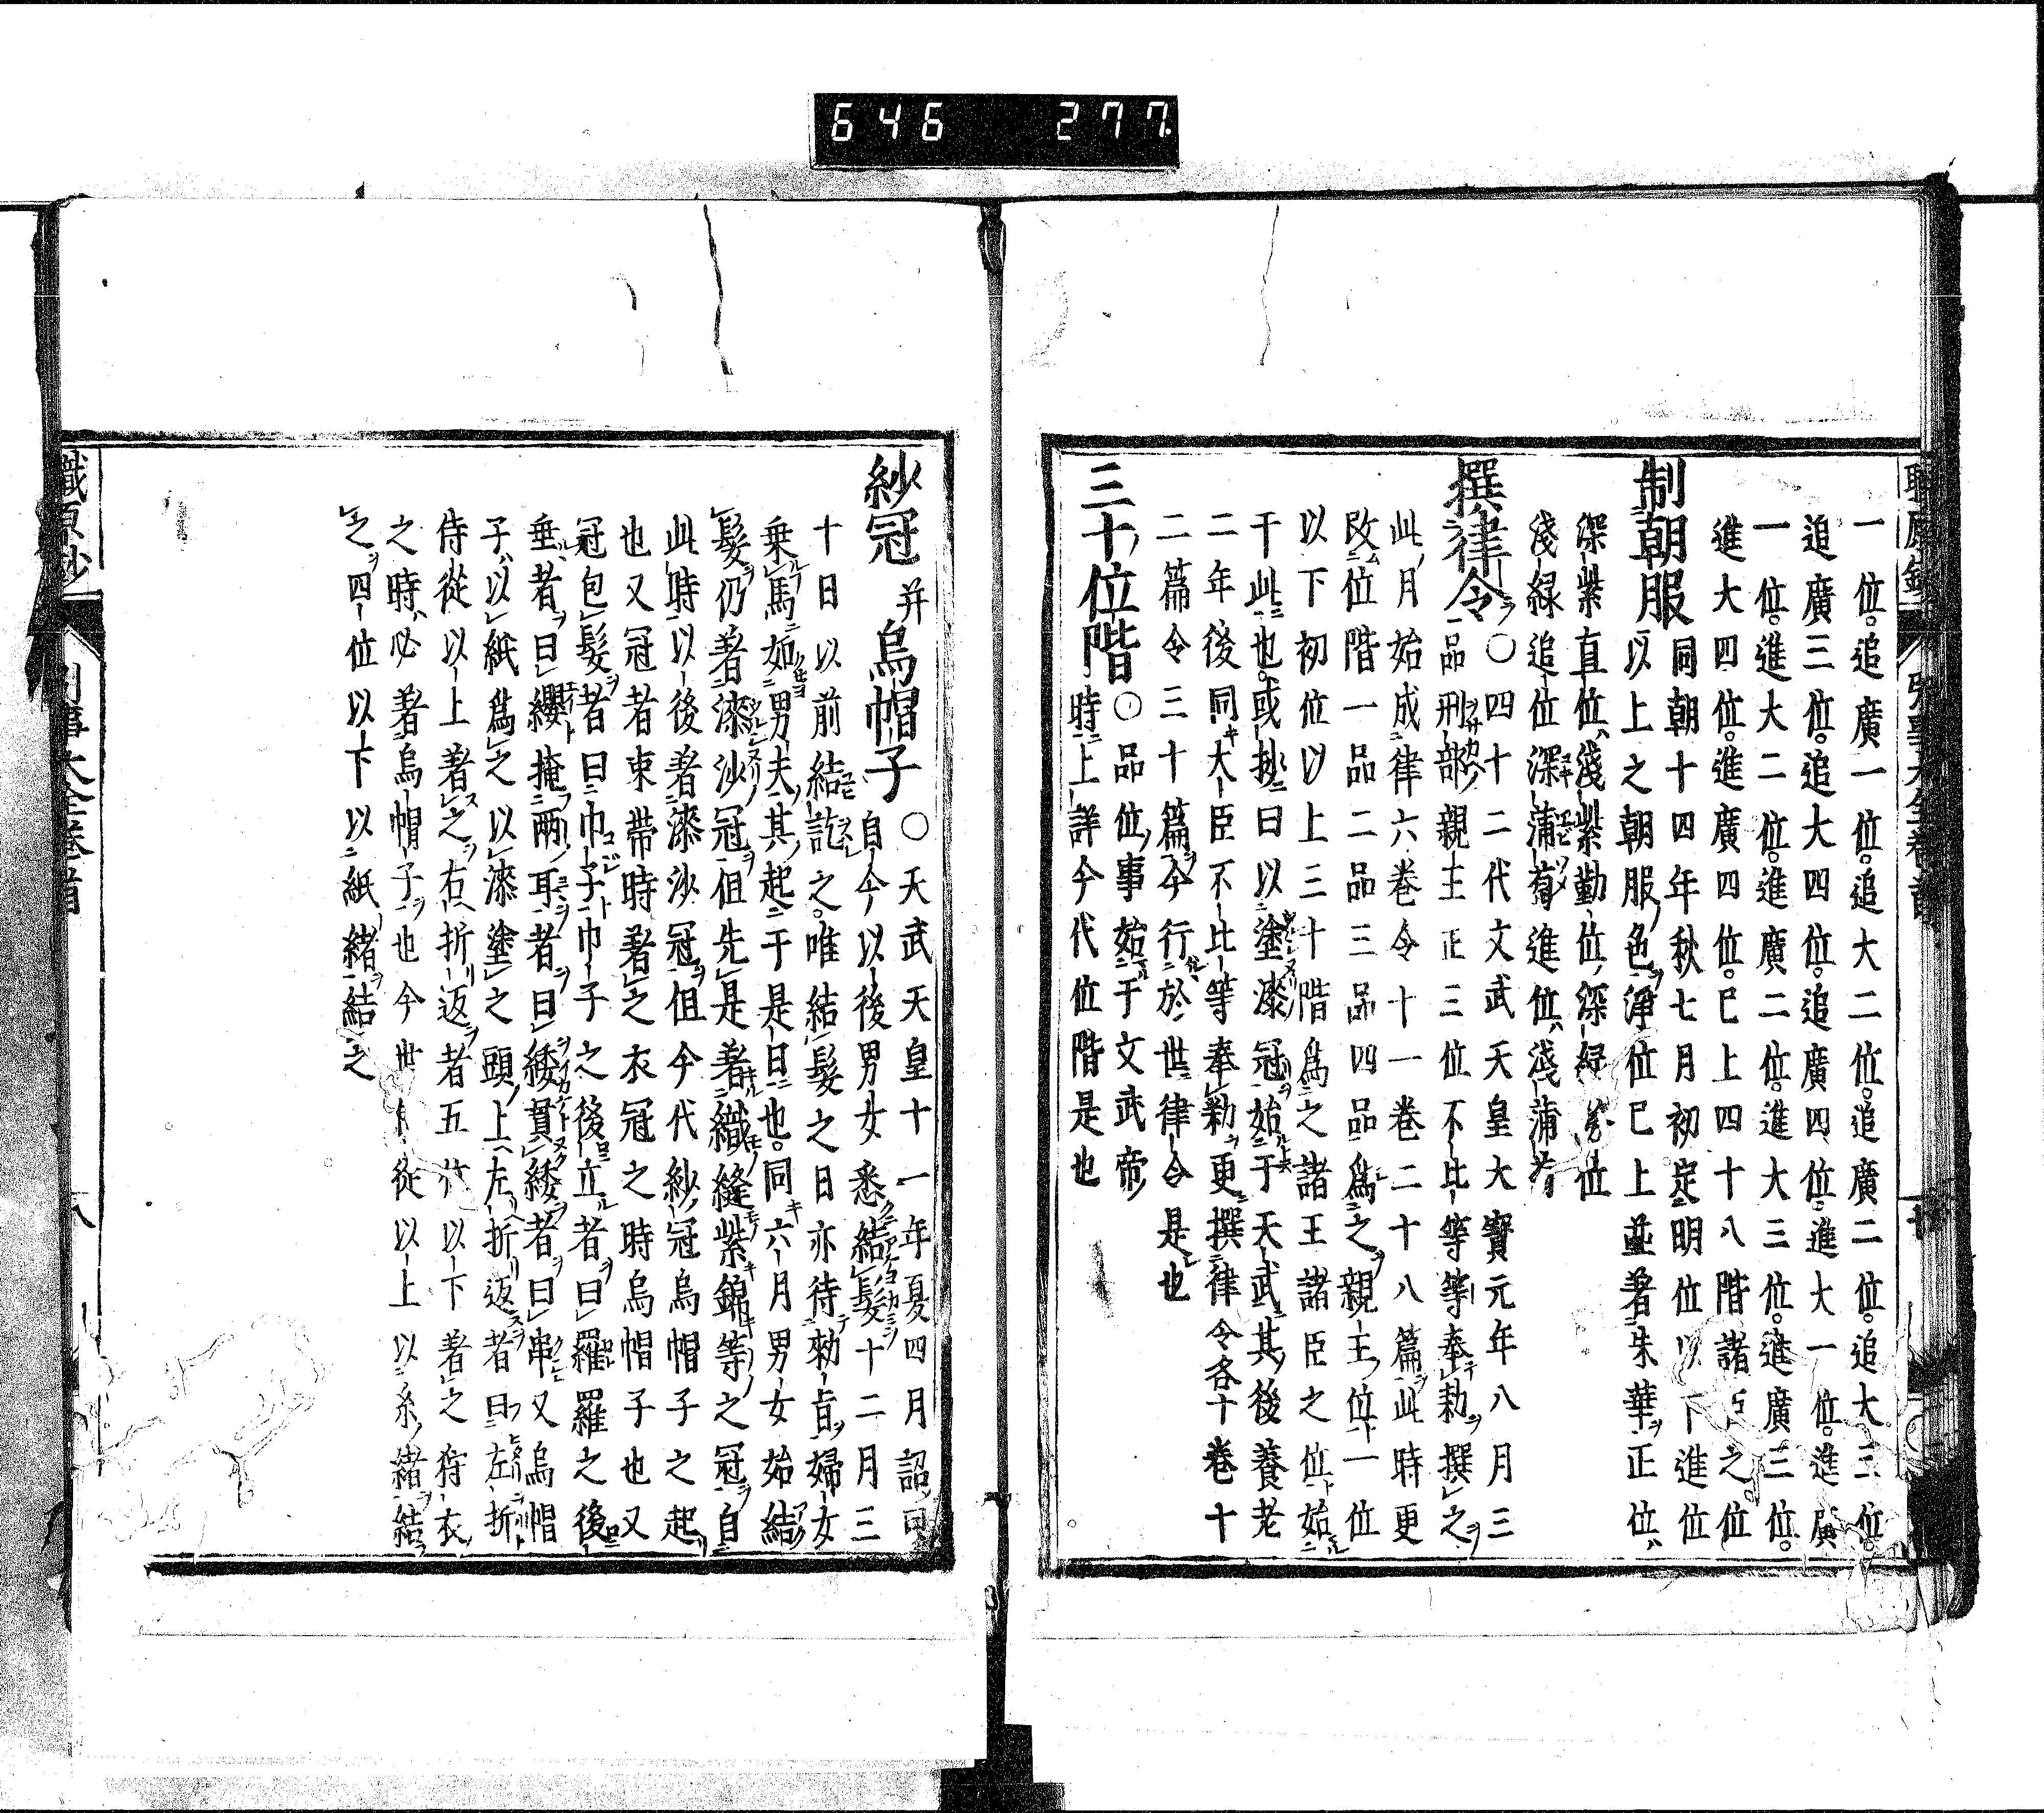 646 277
一位。追廣一位。追大二位。追廣二位。追大三位。
追廣三位。追大四位。追廣四位。進大一位。進廣
一位。進大二位。進廣二位。進大三位。進廣三位。
進大四位。進廣四位。已上四十八階諸臣之位
制朝服 同朝十四年秋七月初定明位以下進位
以上之朝服色淨位已上並著朱華正位
深紫直位淺紫勤位深緑務位
淺緑追位深蒲萄進位淺蒲萄
撰律令 ○四十二代文武天皇大寶元年八月三
品刑部親王正三位不比等等奉勅撰之
此月始成律六卷令十一卷二十八篇此時更
改位階一品二品三品四品為之親王位一位
以下初位以上三十階為之諸王諸臣之位始
于此也。或抄曰以塗漆冠始于天武其後養老
二年後同大臣不比等奉勅更撰律令各十卷十
二篇令三十篇今行於世律令是也
三十位階 ○品位事始于文武帝
時上詳今代位階是也
職原鈔
引事大全卷首
八
紗冠 并烏帽子 ○天武天皇十一年夏四月詔曰
自今以後男女悉結髮十二月三
十日以前結訖之。唯結髮之日亦待勅旨婦女
乗馬如男夫其起于是日也。同六月男女始結
髮仍著漆沙冠但先是著織縫紫錦等之冠自
此時以後著漆沙冠但今代紗冠烏帽子之起
也又冠者束帯時著之衣冠之時烏帽子也又
冠包髮者曰巾子巾子之後立者曰羅羅之後
垂者曰纓掩兩耳者曰緌貫緌者曰串又烏帽
子以紙為之以漆塗之頭上左折返者曰左折
侍從以上著之右折返者五位以下著之狩衣
之時必著烏帽子也今世侍從以上以糸緒結
之四位以下以紙緒結之